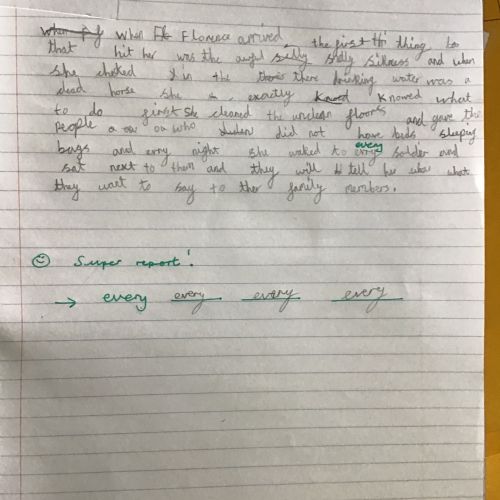 when Florence arrived the first thing to
that hit her was the awful silly sickness and when
she checked in the there drinking water was a
dead horse she exactly knowed what
to do first she cleaned the unclean floors and gave the
people who did not have beds sleeping
bags and erry night she waked to every solder and
sat next to them and they will tell her what
they want to say to ther family members.
☺ Super report!
→ every every every every